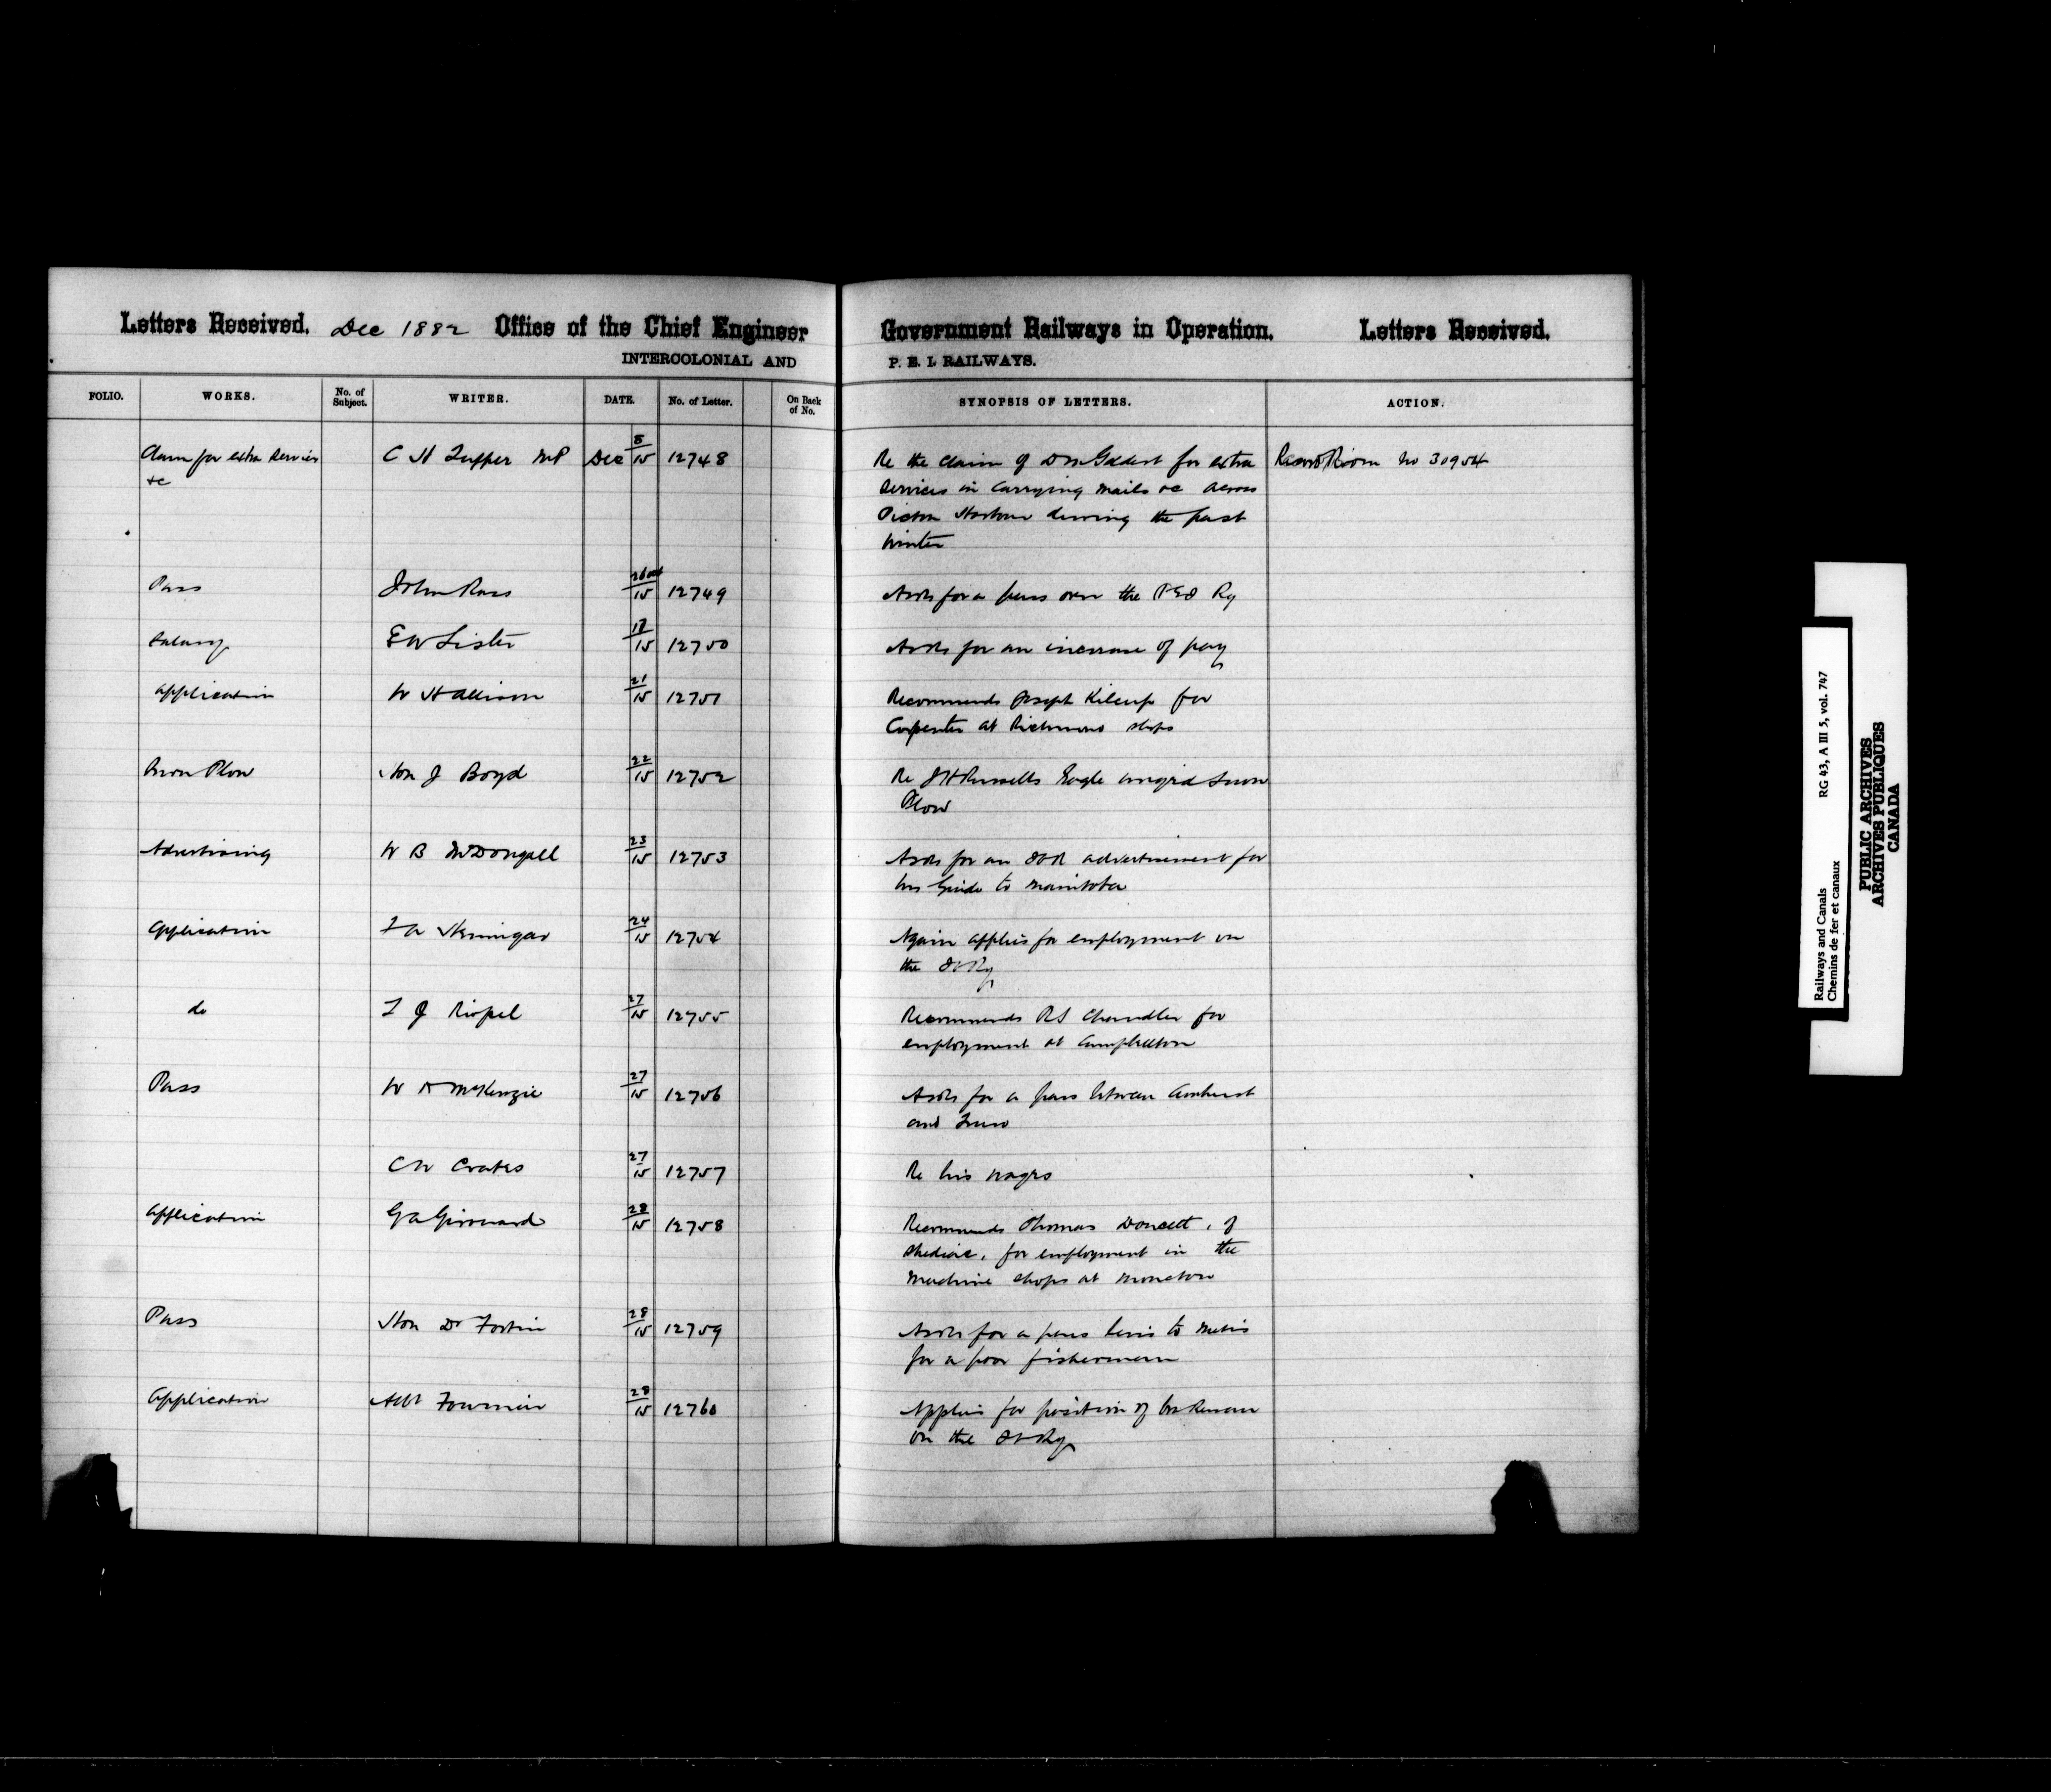 Letters Received. Dec 1882 Office of the Chief Engineer Government Railways in Operation. Letters Received.
INTERCOLONIAL AND P. E. I. RAILWAYS.
FOLIO. WORKS. No. of Subject. WRITER. DATE. No. of Letter. On Back of No. SYNOPSIS OF LETTERS. ACTION.
Claim for extra Services C H Tupper MP Dec 8/15 12748 Re the claim of for extra Record Room No 30954
&c Services in carrying mails &c across
Pictou Harbour during the past
winter
Pass John Ross 26 Oct/15 12749 Asks for a pass over the P E I Ry
Salary E W Lister 12750 Asks for an increase of pay
Application W H Allison 21/15 12751 Recommends Joseph Kilcup for
Carpenter at Richmond shops
Snow Plow Hon J Boyd 22/15 12752 Re J H Russells Eagle winged Snow
Plow
Advertising W B McDougall 23/15 12753 Asks for an ICR advertisement for
his Guide to Manitoba
Application 24/15 12754 Again applies for employment on
the IC Ry
do L J Riopel 27/15 12755 Recommends R S Chandler for
employment at Campbellton
Pass W McKenzie 27/15 12756 Asks for a pass between Amherst
and Truro
C W Coates 27/15 12757 Re his wages
Application G A Girouard 28/15 12758 Recommends Thomas Doucett, of
Shediac, for employment in the
Machine shops at Moncton
Pass Hon Dr Fortin 28/15 12759 Asks for a pass Levis to Metis
for a poor fisherman
Application Fournier 28/15 12760 Applies for position of brakeman
on the IC Ry
Railways and Canals RG 43, A III 5, vol. 747
Chemins de fer et canaux
PUBLIC ARCHIVES
ARCHIVES PUBLIQUES
CANADA